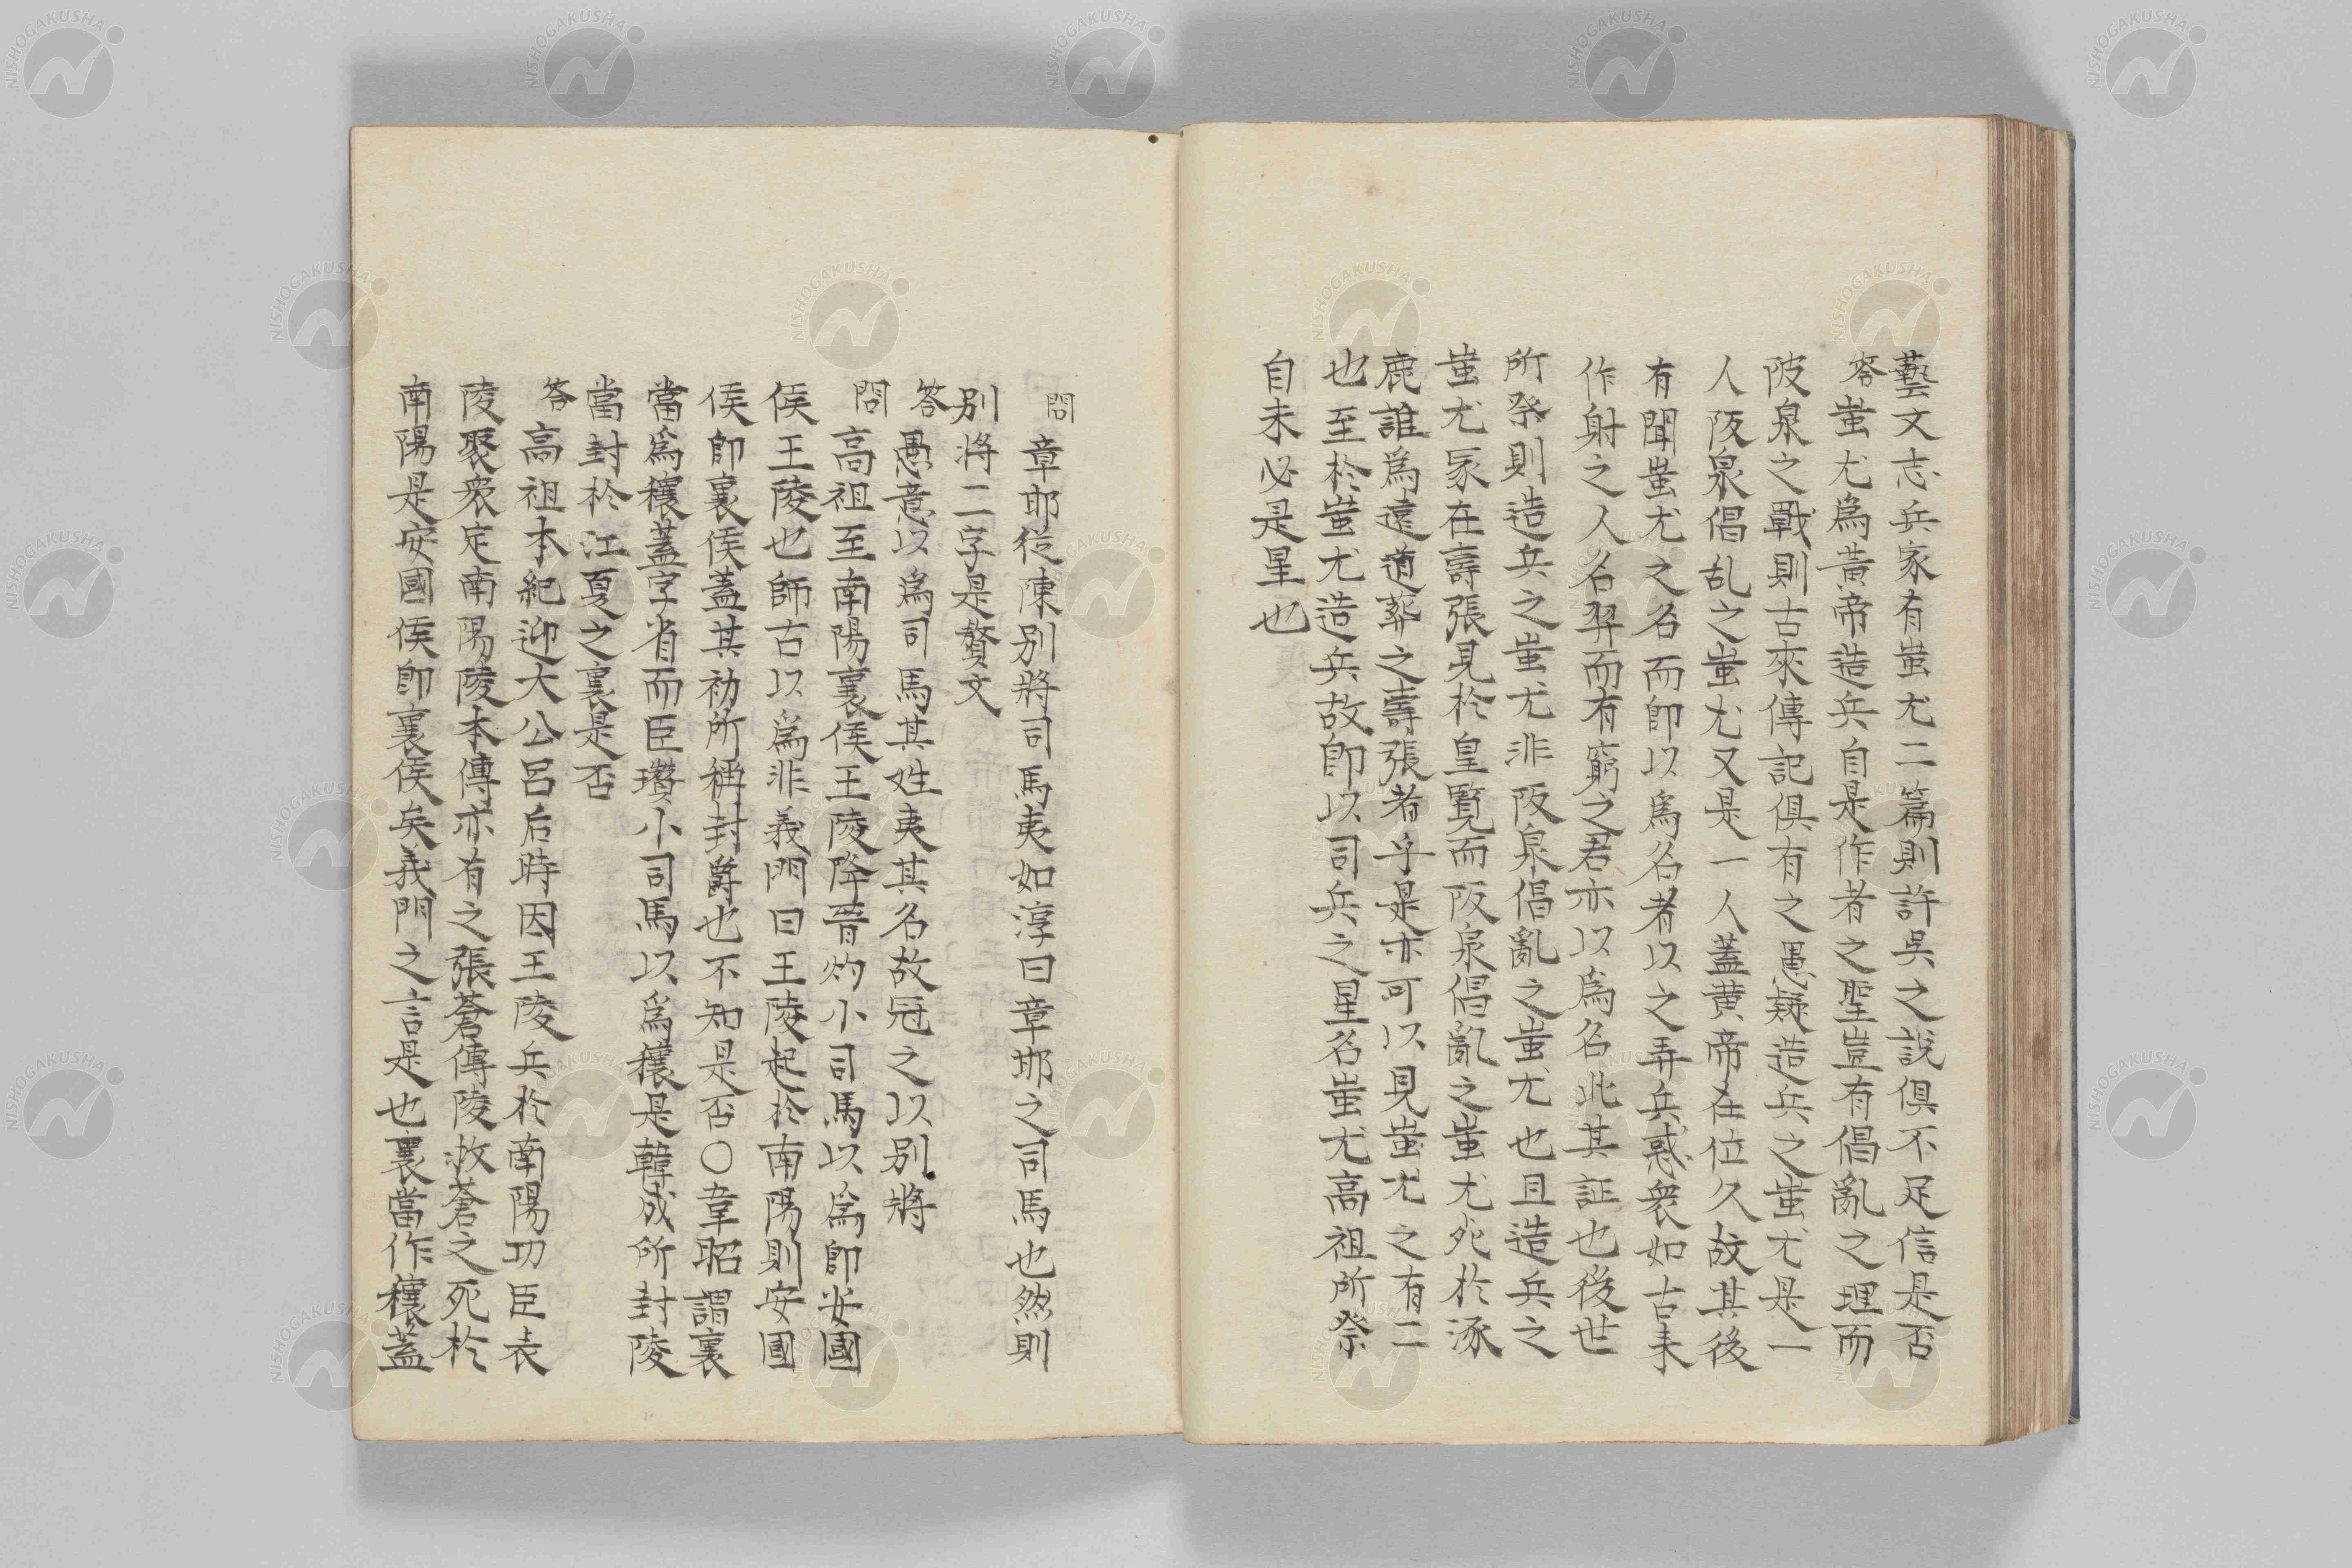 藝文志兵家有蚩尤二篇則許吳之說俱不足信是否
答蚩尤爲黃帝造兵自是作者之聖豈有倡亂之理而
阪泉之戰則古來傳記俱有之愚疑造兵之蚩尤是一
人阪泉倡乱之蚩尤又是一人蓋黄帝在位久故其後
有聞蚩尤之名而卽以爲名者以之弄兵惑衆如古未
作射之人名羿而有窮之君亦以爲名此其証也後世
所祭則造兵之蚩尤非阪泉倡亂之蚩尤也且造兵之
蚩尤冢在壽張見於皇覧而阪泉倡亂之蚩尤死於涿
鹿誰爲遠道葬之壽張者乎是亦可以見蚩尤之有二
也至於蚩尤造兵故卽以司兵之星名蚩尤高祖所祭
自未必是星也
問章邯從陳別將司馬夷如淳曰章邯之司馬也然則
別將二字是贅文
答愚意以爲司馬其姓夷其名故冠之以別將
問高祖至南陽襄侯王陵降晉灼小司馬以爲卽安國
侯王陵也師古以爲非義門曰王陵起於南陽則安國
侯卽襄侯蓋其初所稱封爵也不知是否○韋昭謂襄
當爲穰蓋字省而臣瓚小司馬以爲穰是韓成所封陵
當封於江夏之襄是否
答高祖本紀迎大公呂后時因王陵兵於南陽功臣表
陵聚衆定南陽陵本傳亦有之張蒼傳陵救蒼之死於
南陽是安國侯卽襄侯矣義門之言是也襄當作穰蓋
NISHOGAKUSHA